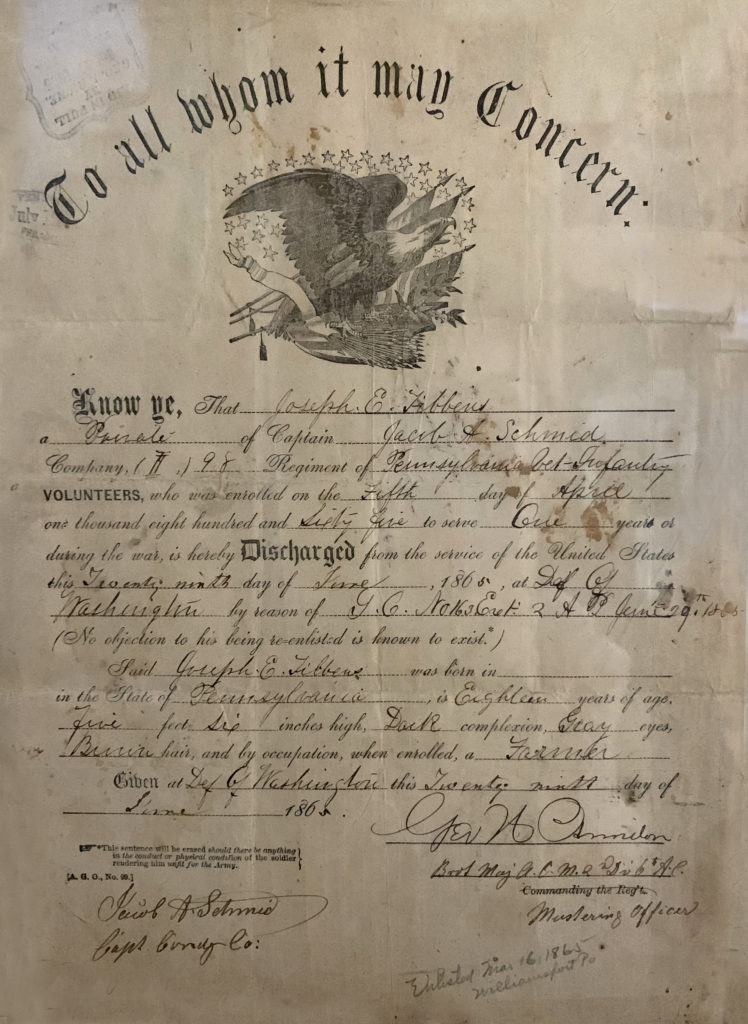 To all whom it may Concern:
July
Know ye, That Joseph. E. Tibbens
a Private of Captain Jacob A. Schmid.
Company, ( ,) 98 Regiment of Pennsylvania Vet. Infantry
VOLUNTEERS, who was enrolled on the Fifth day of April
one thousand eight hundred and Sixty five to serve One years or
during the war, is hereby Discharged from the service of the United States
this Twenty ninth day of June, 1865, at Def Of
Washington by reason of No 163 June 29th 1865
(No objection to his being re-enlisted is known to exist.*)
Said Joseph. E. Tibbens was born in
in the State of Pennsylvania, is Eighteen years of age,
Five feet Six inches high, Dark complexion, Gray eyes,
Brown hair, and by occupation, when enrolled, a Farmer
Given at Def Of Washington this Twenty ninth day of
June 1865.
Geo W
*This sentence will be erased should there be anything
in the conduct or physical condition of the soldier
rendering him unfit for the Army.
[A. G. O., No. 99.]
Bvt Maj A. C. M. 2d Div 6th A. C.
Commanding the Reg't.
Mustering Officer
Jacob A Schmid
Capt Comdg Co:
Enlisted Mar 16, 1865
Williamsport Pa